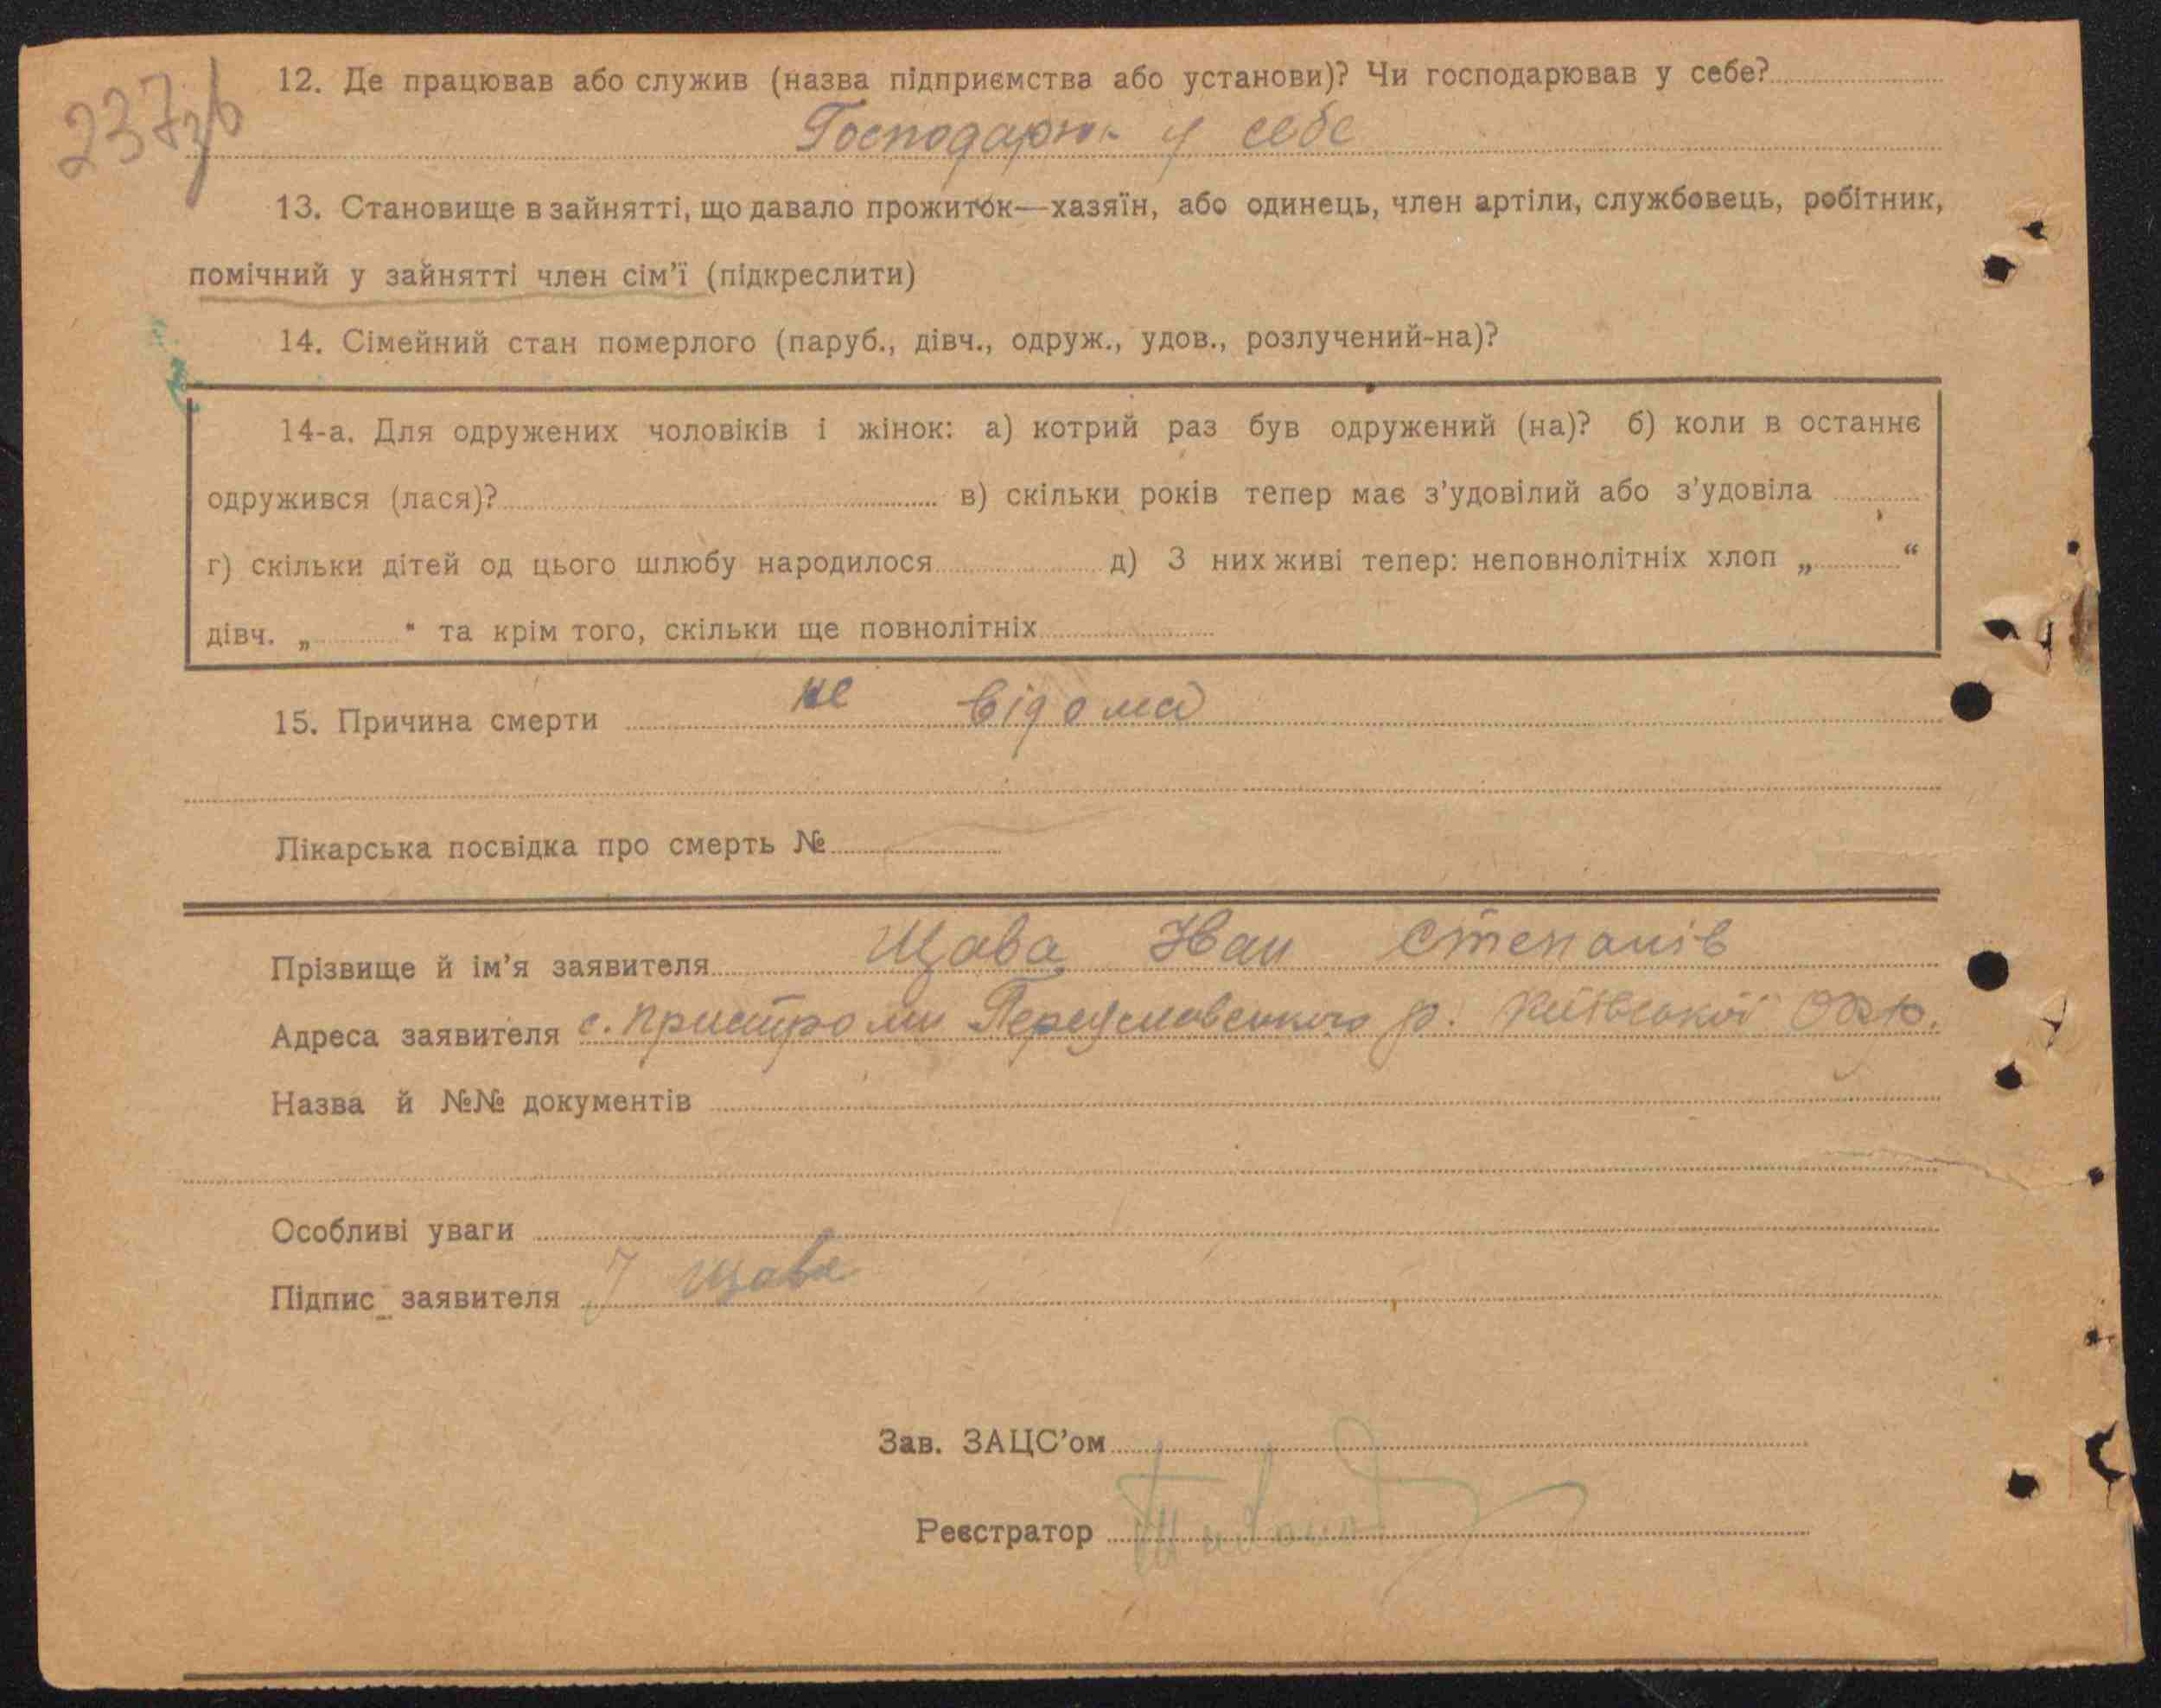 237зв
12. Де працював або служив (назва підприємства або установи)? Чи господарював у себе?
Господарюв у себе
13. Становище в зайнятті, що давало прожиток—хазяїн, або одинець, член артіли, службовець, робітник,
помічний у зайнятті член сім’ї (підкреслити)
14. Сімейний стан померлого (паруб., дівч., одруж., удов., розлучений-на)?
14-а. Для одружених чоловіків і жінок: а) котрий раз був одружений (на)? б) коли в останнє
одружився (лася)? в) скільки років тепер має з’удовілий або з’удовіла
г) скільки дітей од цього шлюбу народилося д) З них живі тепер: неповнолітніх хлоп „ “
дівч. „ “ та крім того, скільки ще повнолітніх
15. Причина смерти не відома
Лікарська посвідка про смерть №
Прізвище й ім’я заявителя Щава Иван Степанів
Адреса заявителя с. Пристроми Переяславського р. Київської Окр.
Назва й №№ документів
Особливі уваги
Підпис заявителя І Щава
Зав. ЗАЦС’ом
Реєстратор